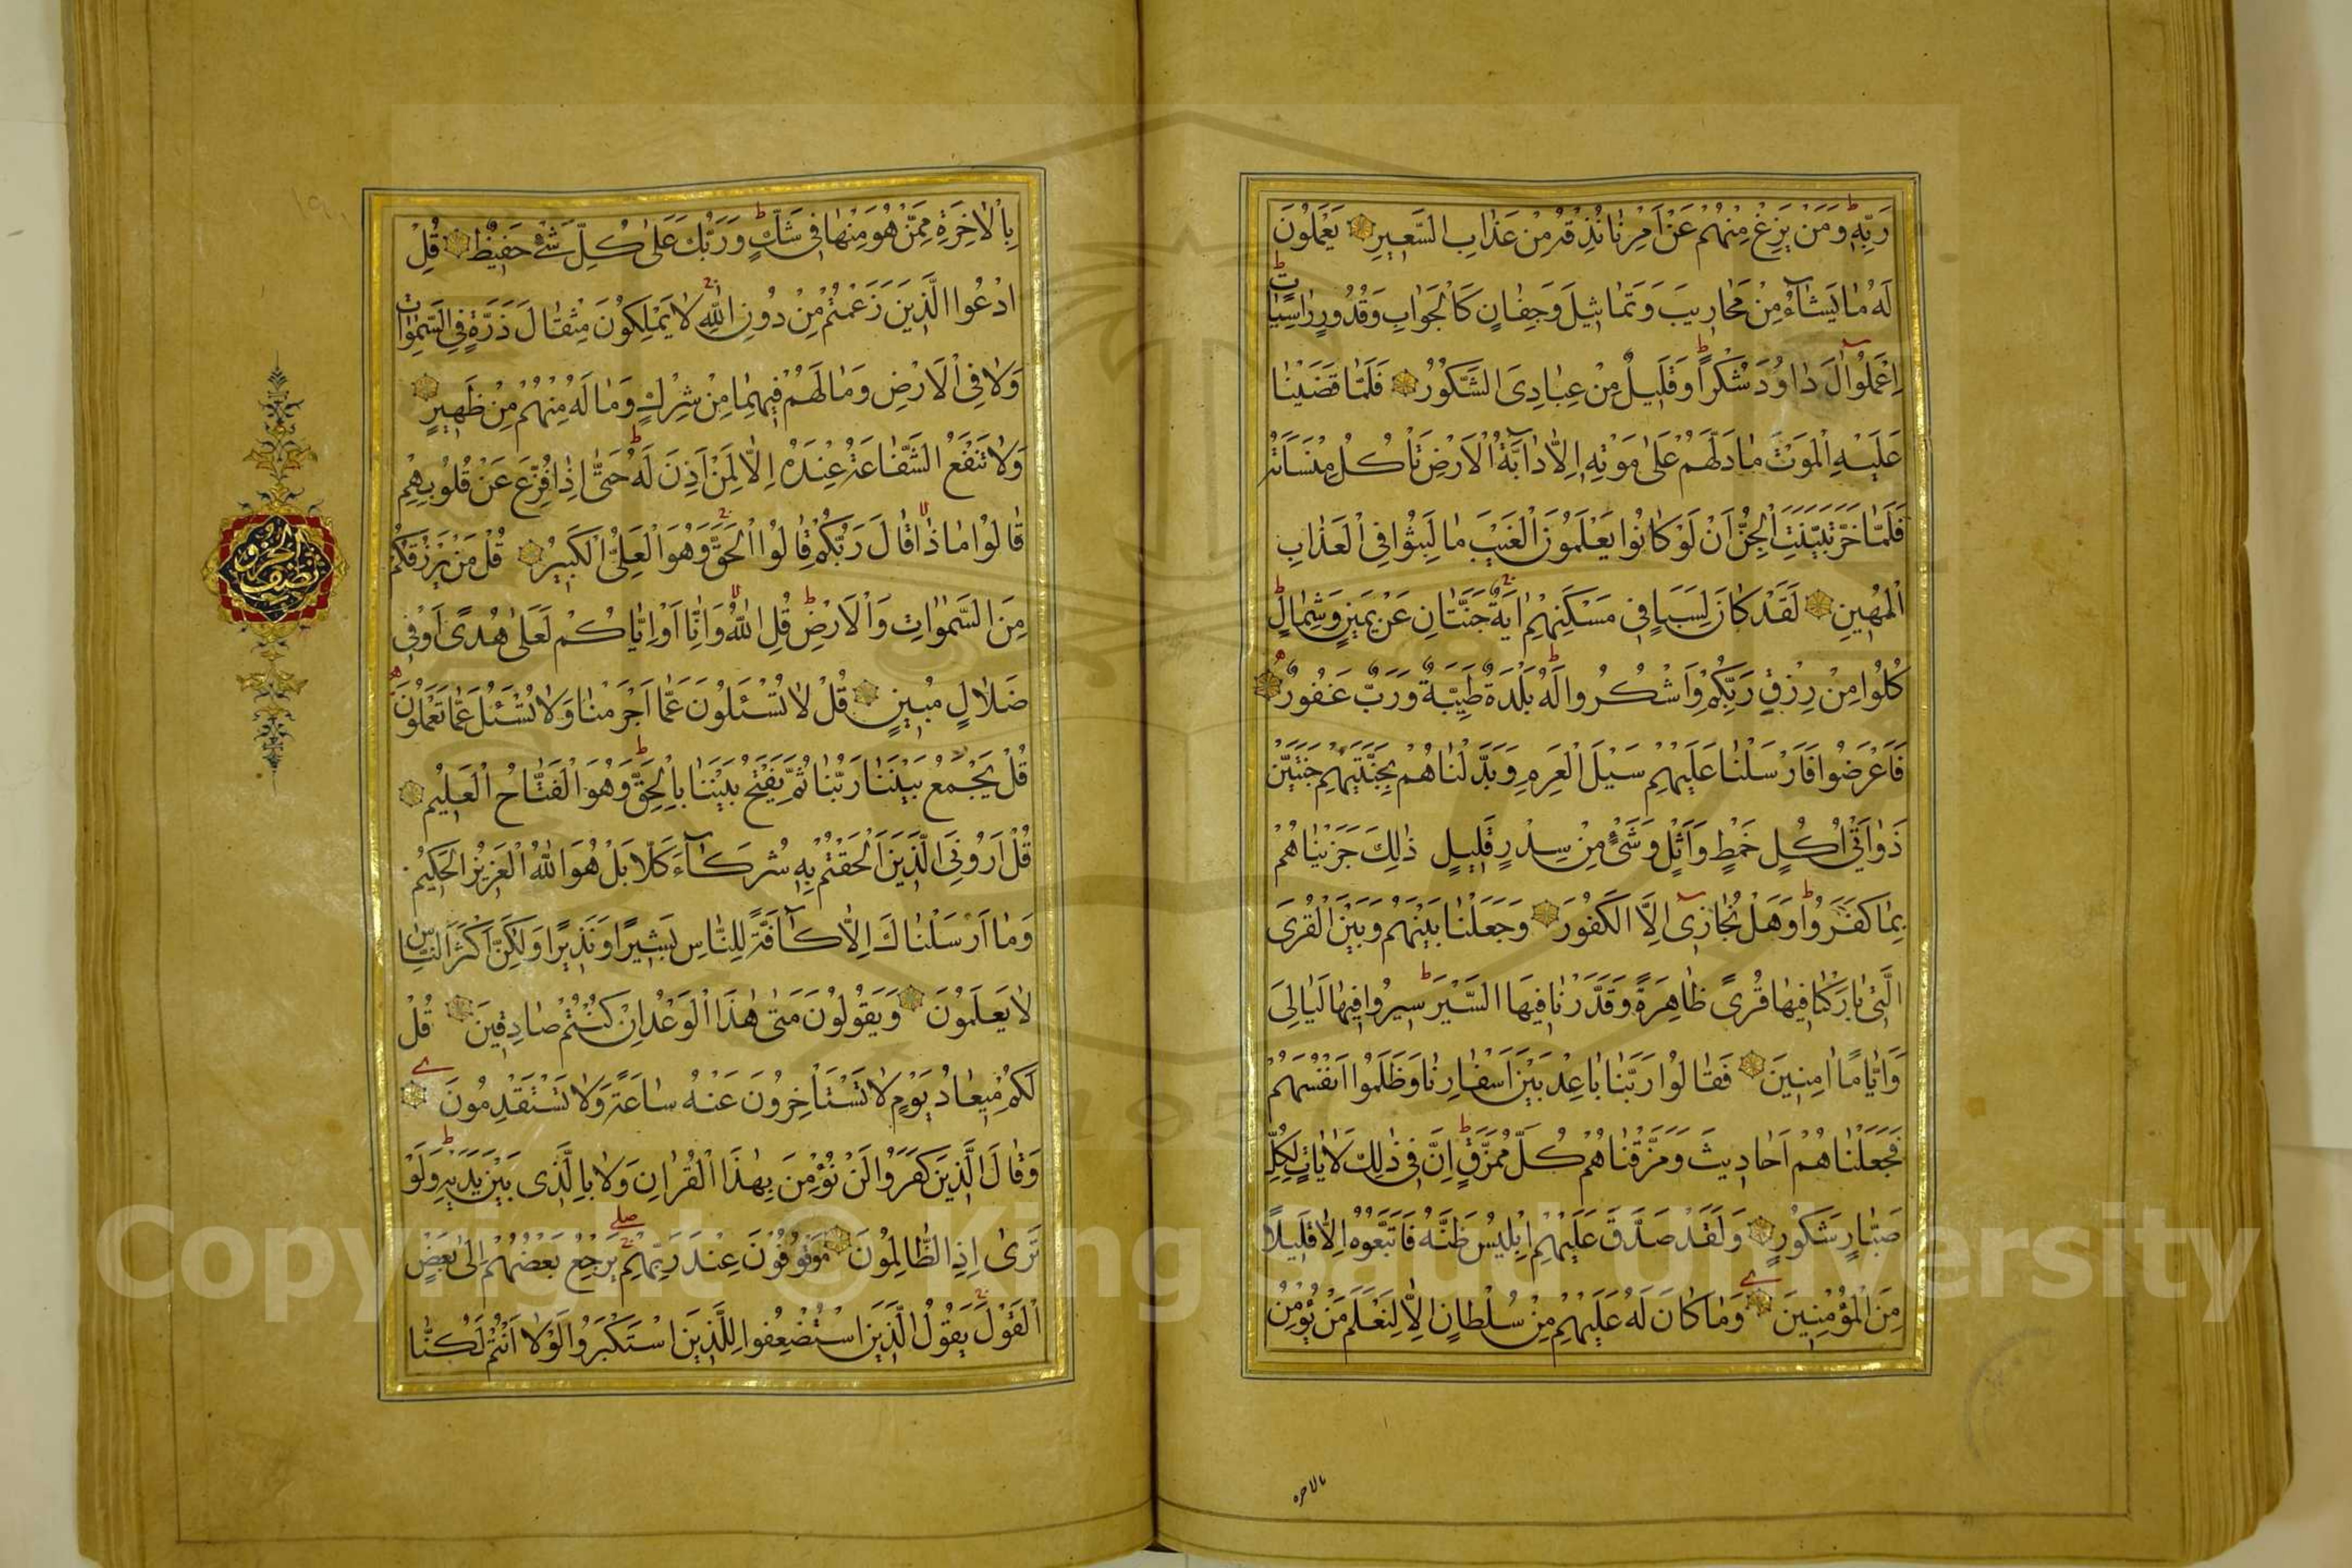 رَبِّهِ وَمَنْ يَزِغْ مِنْهُمْ عَنْ اَمْرِنَا نُذِقْهُ مِنْ عَذَابِ السَّعِيرِ يَعْمَلُونَ
لَهُ مَا يَشَآءُ مِنْ مَحَارِيبَ وَتَمَاثِيلَ وَجِفَانٍ كَالْجَوَابِ وَقُدُورٍ رَاسِيَاتٍ
اِعْمَلُوٓا اٰلَ دَاوُدَ شُكْرًا وَقَلِيلٌ مِنْ عِبَادِيَ الشَّكُورُ فَلَمَّا قَضَيْنَا
عَلَيْهِ الْمَوْتَ مَا دَلَّهُمْ عَلٰى مَوْتِهِ اِلَّا دَآبَّةُ الْاَرْضِ تَأْكُلُ مِنْسَأَتَهُ
فَلَمَّا خَرَّ تَبَيَّنَتِ الْجِنُّ اَنْ لَوْ كَانُوا يَعْلَمُونَ الْغَيْبَ مَا لَبِثُوا فِي الْعَذَابِ
الْمُهِينِ لَقَدْ كَانَ لِسَبَاٍ فِي مَسْكَنِهِمْ اٰيَةٌ جَنَّتَانِ عَنْ يَمِينٍ وَشِمَالٍ
كُلُوا مِنْ رِزْقِ رَبِّكُمْ وَاشْكُرُوا لَهُ بَلْدَةٌ طَيِّبَةٌ وَرَبٌّ غَفُورٌ
فَاَعْرَضُوا فَاَرْسَلْنَا عَلَيْهِمْ سَيْلَ الْعَرِمِ وَبَدَّلْنَاهُمْ بِجَنَّتَيْهِمْ جَنَّتَيْنِ
ذَوَاتَيْ اُكُلٍ خَمْطٍ وَاَثْلٍ وَشَيْءٍ مِنْ سِدْرٍ قَلِيلٍ ذٰلِكَ جَزَيْنَاهُمْ
بِمَا كَفَرُوا وَهَلْ نُجَازِي اِلَّا الْكَفُورَ وَجَعَلْنَا بَيْنَهُمْ وَبَيْنَ الْقُرَى
الَّتِي بَارَكْنَا فِيهَا قُرًى ظَاهِرَةً وَقَدَّرْنَا فِيهَا السَّيْرَ سِيرُوا فِيهَا لَيَالِيَ
وَاَيَّامًا اٰمِنِينَ فَقَالُوا رَبَّنَا بَاعِدْ بَيْنَ اَسْفَارِنَا وَظَلَمُوا اَنْفُسَهُمْ
فَجَعَلْنَاهُمْ اَحَادِيثَ وَمَزَّقْنَاهُمْ كُلَّ مُمَزَّقٍ اِنَّ فِي ذٰلِكَ لَاٰيَاتٍ لِكُلِّ
صَبَّارٍ شَكُورٍ وَلَقَدْ صَدَّقَ عَلَيْهِمْ اِبْلِيسُ ظَنَّهُ فَاتَّبَعُوهُ اِلَّا فَرِيقًا
مِنَ الْمُؤْمِنِينَ وَمَا كَانَ لَهُ عَلَيْهِمْ مِنْ سُلْطَانٍ اِلَّا لِنَعْلَمَ مَنْ يُؤْمِنُ
بالاخره
بِالْاٰخِرَةِ مِمَّنْ هُوَ مِنْهَا فِي شَكٍّ وَرَبُّكَ عَلٰى كُلِّ شَيْءٍ حَفِيظٌ قُلِ
ادْعُوا الَّذِينَ زَعَمْتُمْ مِنْ دُونِ اللّٰهِ لَا يَمْلِكُونَ مِثْقَالَ ذَرَّةٍ فِي السَّمٰوَاتِ
وَلَا فِي الْاَرْضِ وَمَا لَهُمْ فِيهِمَا مِنْ شِرْكٍ وَمَا لَهُ مِنْهُمْ مِنْ ظَهِيرٍ
وَلَا تَنْفَعُ الشَّفَاعَةُ عِنْدَهُ اِلَّا لِمَنْ اَذِنَ لَهُ حَتّٰى اِذَا فُزِّعَ عَنْ قُلُوبِهِمْ
قَالُوا مَاذَا قَالَ رَبُّكُمْ قَالُوا الْحَقَّ وَهُوَ الْعَلِيُّ الْكَبِيرُ قُلْ مَنْ يَرْزُقُكُمْ
مِنَ السَّمٰوَاتِ وَالْاَرْضِ قُلِ اللّٰهُ وَاِنَّا اَوْ اِيَّاكُمْ لَعَلٰى هُدًى اَوْ فِي
ضَلَالٍ مُبِينٍ قُلْ لَا تُسْـَٔلُونَ عَمَّا اَجْرَمْنَا وَلَا نُسْـَٔلُ عَمَّا تَعْمَلُونَ
قُلْ يَجْمَعُ بَيْنَنَا رَبُّنَا ثُمَّ يَفْتَحُ بَيْنَنَا بِالْحَقِّ وَهُوَ الْفَتَّاحُ الْعَلِيمُ
قُلْ اَرُونِيَ الَّذِينَ اَلْحَقْتُمْ بِهِ شُرَكَآءَ كَلَّا بَلْ هُوَ اللّٰهُ الْعَزِيزُ الْحَكِيمُ
وَمَا اَرْسَلْنَاكَ اِلَّا كَآفَّةً لِلنَّاسِ بَشِيرًا وَنَذِيرًا وَلٰكِنَّ اَكْثَرَ النَّاسِ
لَا يَعْلَمُونَ وَيَقُولُونَ مَتٰى هٰذَا الْوَعْدُ اِنْ كُنْتُمْ صَادِقِينَ قُلْ
لَكُمْ مِيعَادُ يَوْمٍ لَا تَسْتَأْخِرُونَ عَنْهُ سَاعَةً وَلَا تَسْتَقْدِمُونَ
وَقَالَ الَّذِينَ كَفَرُوا لَنْ نُؤْمِنَ بِهٰذَا الْقُرْاٰنِ وَلَا بِالَّذِي بَيْنَ يَدَيْهِ وَلَوْ
تَرٰى اِذِ الظَّالِمُونَ مَوْقُوفُونَ عِنْدَ رَبِّهِمْ يَرْجِعُ بَعْضُهُمْ اِلٰى بَعْضٍ
الْقَوْلَ يَقُولُ الَّذِينَ اسْتُضْعِفُوا لِلَّذِينَ اسْتَكْبَرُوا لَوْلَا اَنْتُمْ لَكُنَّا
نصف الحزب
Copyright © King Saud University
1957